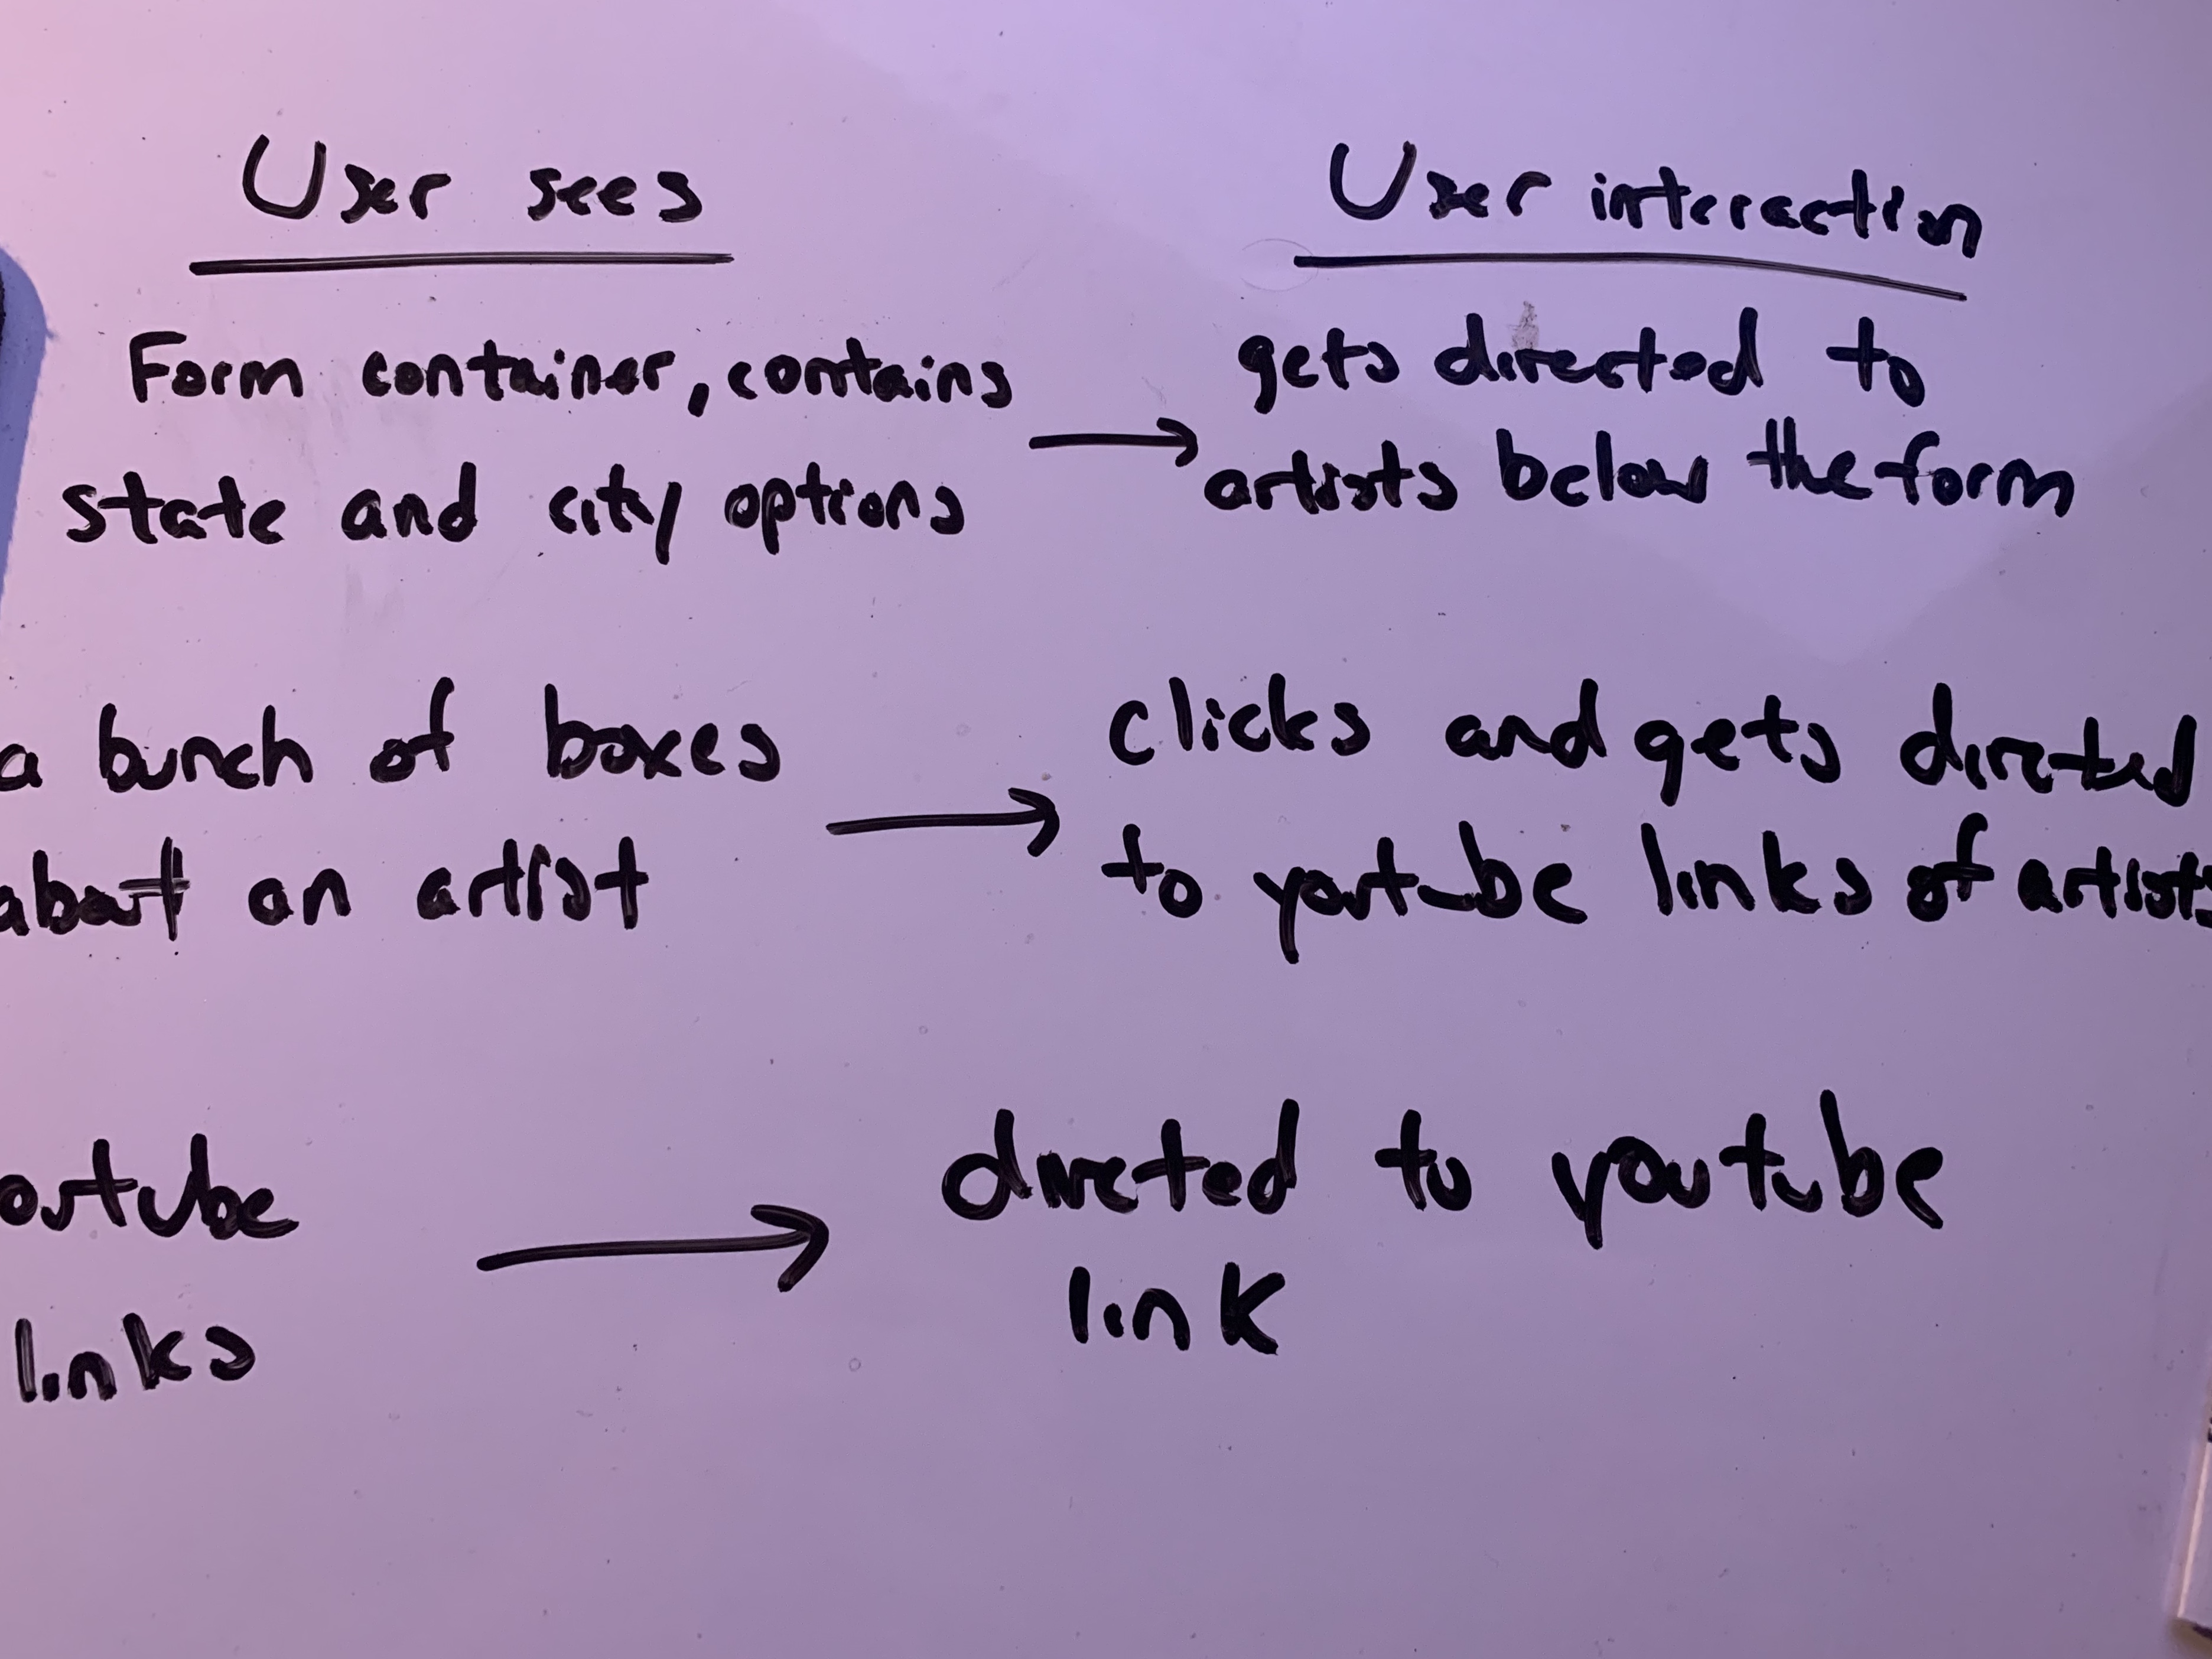 User sees
User interaction
Form container, contains
state and city options
gets directed to
artists below the form
a bunch of boxes
about an artist
clicks and gets directed
to youtube links of artists
outube
links
directed to youtube
link